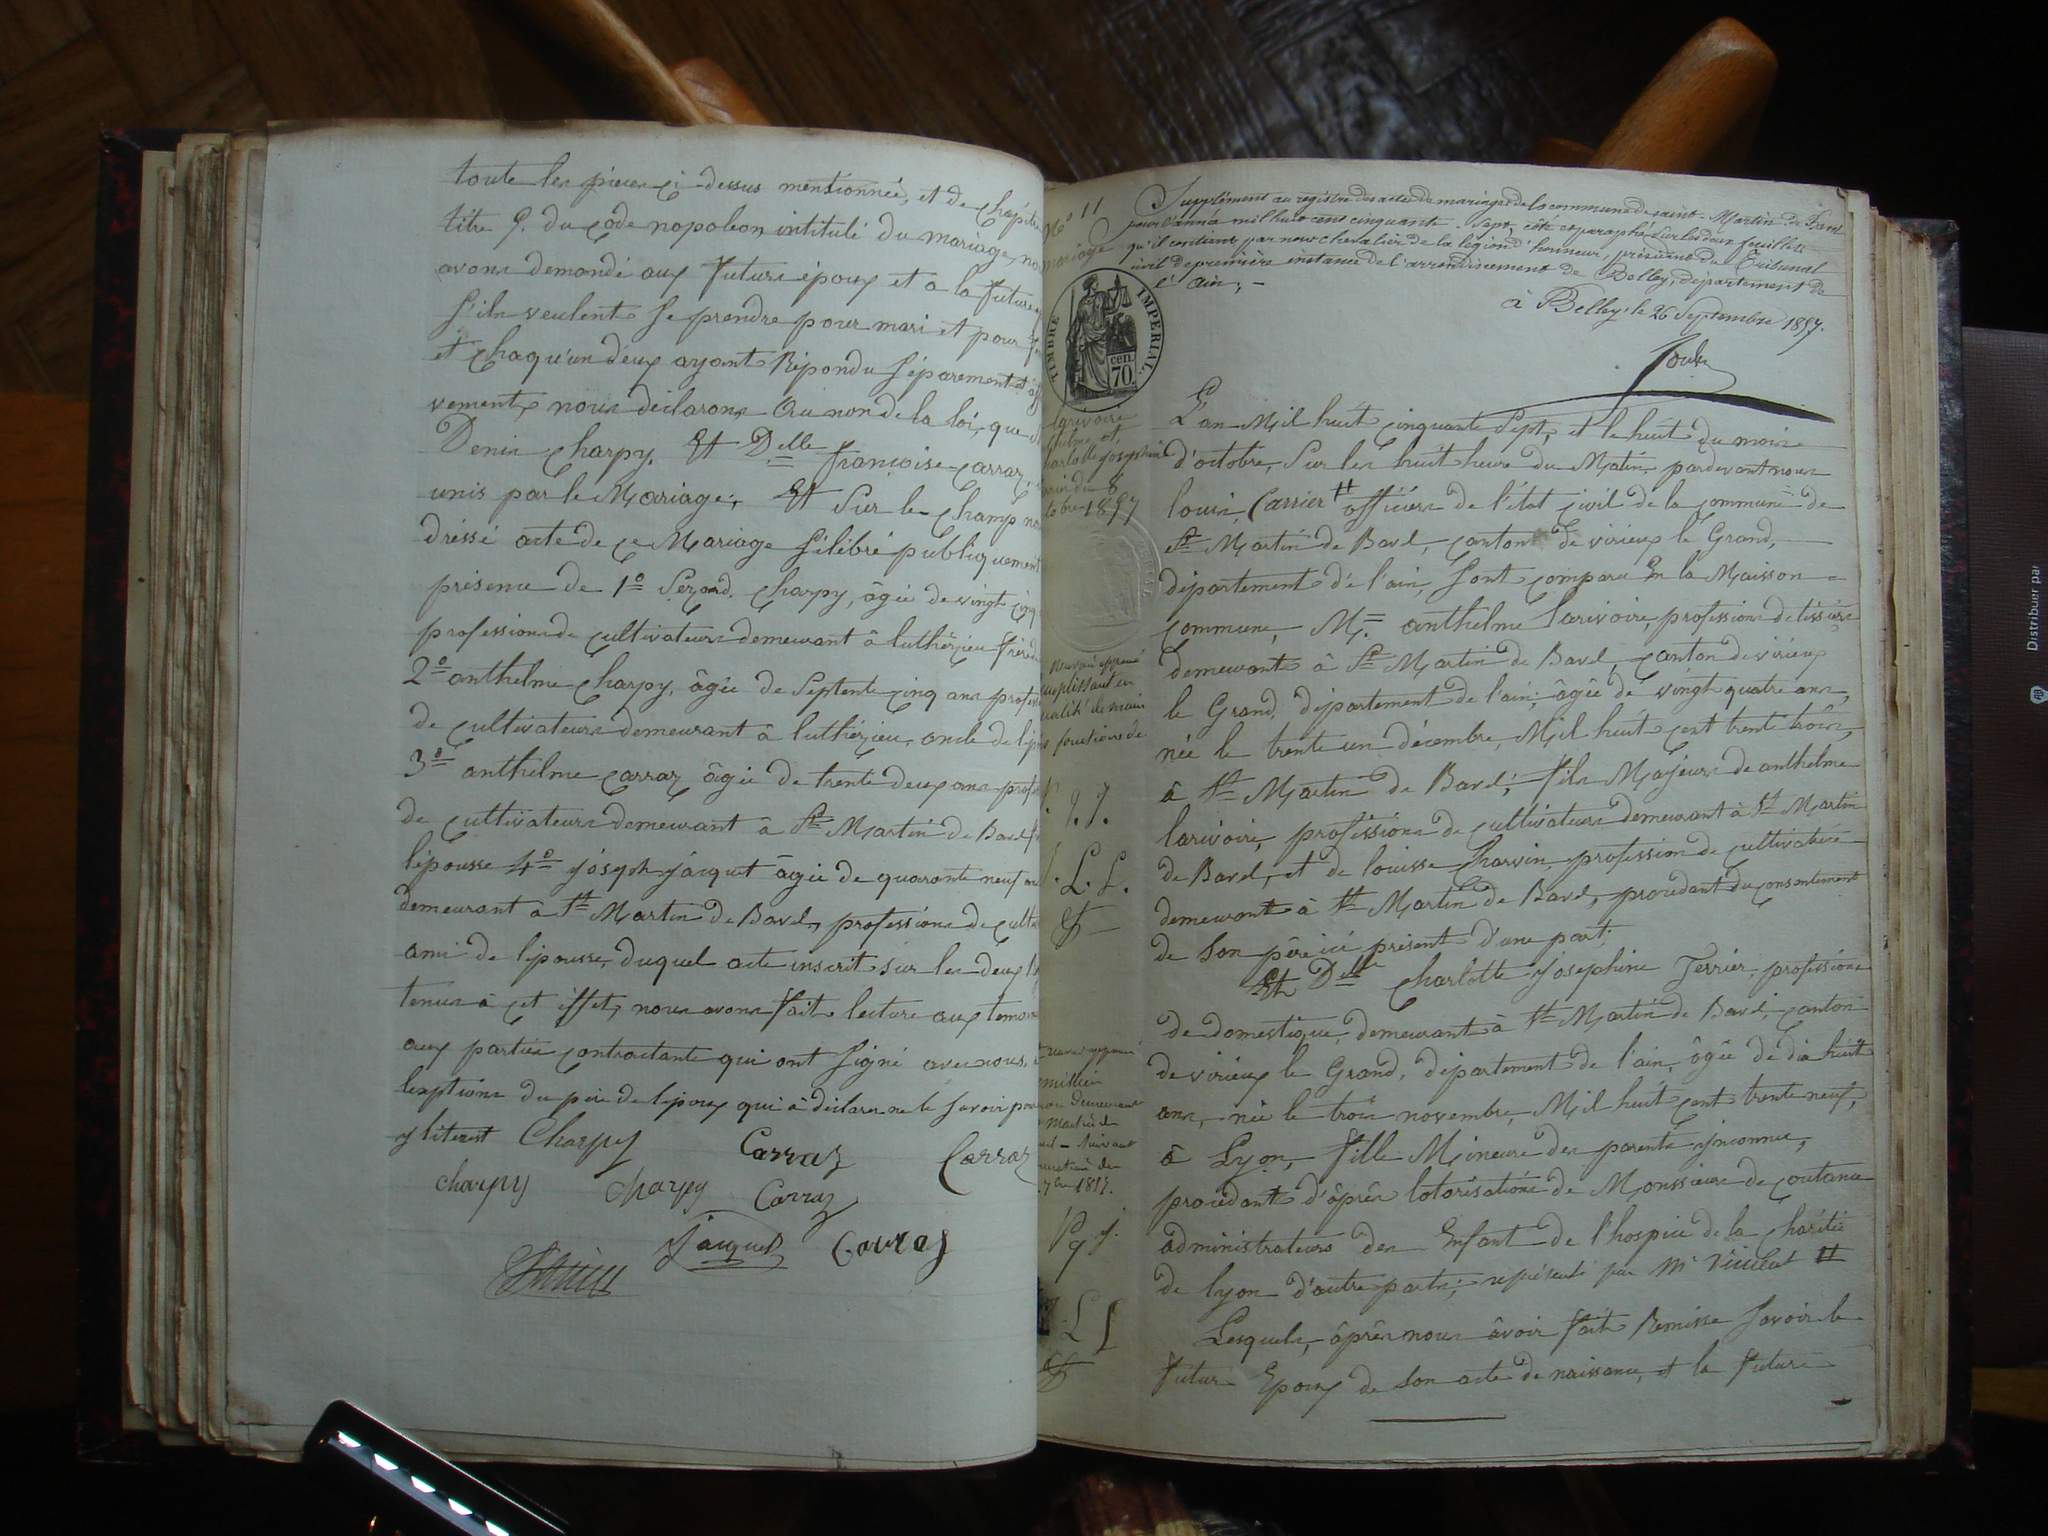 toute les pieces ci-dessus mentionnée, et de chapitre
titre 5. du code nopoleon, intitulé du mariage, no
avons demandé aux future époux et a la future
s'ils veulent se prendre pour mari et pour
et chaqu'un d'eux ayant Répondu séparement et
vement, nous déclarons Au non de la loi, que
Denis Charpy, Et Delle françoise Carraz,
unis par le Mariage; Et Sur le Champ
dréssé acte de ce Mariage Sélébré publiquement
présence de 1o Charpy, âgée de vingt cinq
professions de cultivateurs demeurant à luthézieu frère
2o anthelme Charpy, âgée de Septente cinq ans profess
de cultivateurs demeurant à luthézieu, oncle de l'épou
3o anthelme Carraz âgée de trente deux ans profess
de cultivateurs demeurant à St Martin de Bavel
l'épousse 4o joseph jacquet âgée de quarante neuf ans
demeurant à St Martin de Bavel, professions de culti
ami de l'épousse, duquel acte inscrit sur les deux
tenus à cet éffet, nous avons fait lecture aux temoi
aux parties contractante qui ont Signé avec nous,
lexeptions du pére de l'époux qui à déclarer ne le savoir pour
Charpy Carraz Carraz
charpy charpy Carraz
Jacquet Carraz
No 11
mariage
Supplément au registre des actes de mariage de la commune de saint-Martin de Bavel
pour l'année mil huit cent cinquante Sept, côté et paraphé sur les deux feuillets
qu'il contient par nous chevalier de la légion d'honneur, président du Tribunal
civil de première instance de l'arrondissement de Belley, département de
l'Ain; -
à Belley le 26 Septembre 1857.
TIMBRE IMPERIAL
70 cen.
larivoire
anthelme et
charlotte josephine
terrier du 8
octobre 1857
L'an Mil huit cinquante Sept, et le huit du mois
d'octobre, Sur les huit heure du Matin, pardevant nous
louis, Carrier officiers de l'état civil de la commune de
St Martin de Bavel, canton de virieux le Grand,
département de l'ain, sont comparu En la Maisson
commune, Mr. anthelme larivoire, profession de tissier
demeurant à St Martin de Bavel, canton de virieux
le Grand, département de l'ain; âgée de vingt quatre ans,
née le trente un décembre, Mil huit cent trente trois,
à St Martin de Bavel; fils Majeurs de anthelme
larivoire, professions de cultivateurs demeurant à St Martin
de Bavel, et de louisse Charvin, profession de cultivatrice
demeurant à St Martin de Bavel, procédant du consentement
de son pére ici présent d'une part;
Et Delle Charlotte Josephine Terrier, professions
de domestique, demeurant à St Martin de Bavel, canton
de virieux le Grand, département de l'ain, âgée de dix huit
ans, née le trois novembre, Mil huit cent trente neuf,
à Lyon, fille Mineure des parents inconnus,
procédant d'âprès lotorisations de Monssieurs de coutance
administrateurs des Enfant de l'hospice de la Charitée
de lyon d'autre parts; représenté par Mr Vincent
Lesquels, âprês nous âvoir fait Remisse savoir le
futur Epoux de son acte de naissance, et la future
Renvoi approuvé
remplissant en
qualité de maire
les fonctions de
L. L.
renvoi approuvé
demeurant
Martin de
suivant
7bre 1857.
Distribuer par